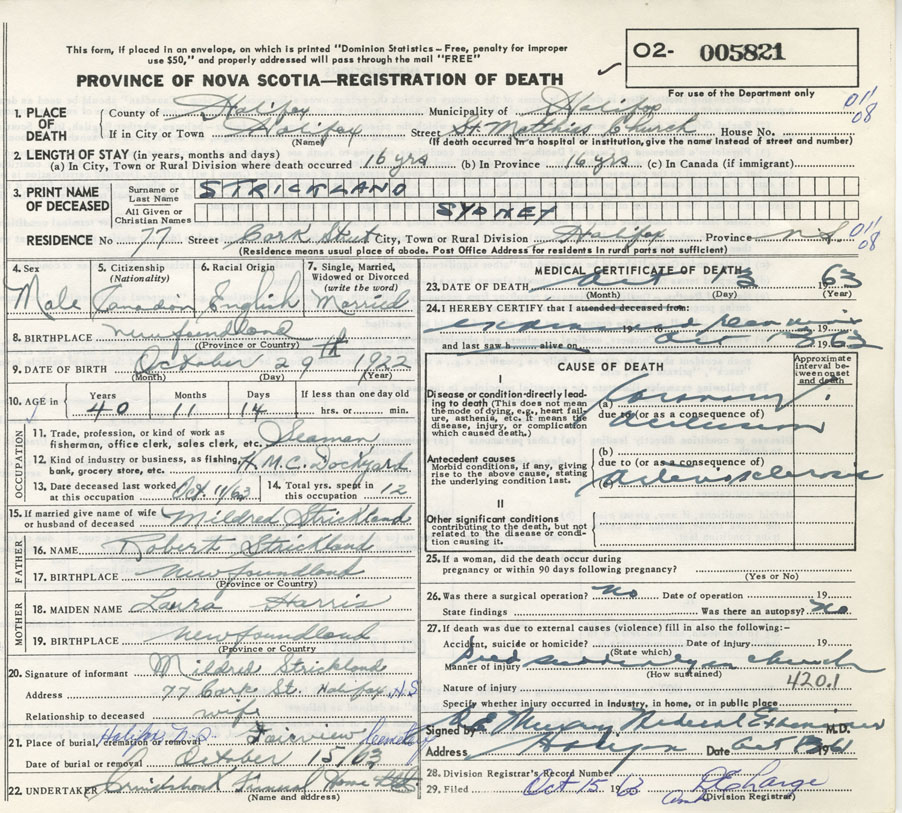 This form, if placed in an envelope, on which is printed "Dominion Statistics – Free, penalty for improper
use $50," and properly addressed will pass through the mail "FREE"
PROVINCE OF NOVA SCOTIA—REGISTRATION OF DEATH
O2- 005821
For use of the Department only
011
08
1. PLACE OF DEATH
County of Halifax Municipality of Halifax
If in City or Town Halifax Street St. Matthias Church House No.
(Name) (If death occurred in a hospital or institution, give name instead of street and number)
2. LENGTH OF STAY (in years, months and days)
(a) In City, Town or Rural Division where death occurred 16 yrs (b) In Province 16 yrs (c) In Canada (if immigrant)
3. PRINT NAME OF DECEASED
Surname or Last Name STRICKLAND
All Given or Christian Names SYDNEY
RESIDENCE No 77 Street Cork Street City, Town or Rural Division Halifax Province N S
011
08
(Residence means usual place of abode. Post Office Address for residents in rural parts not sufficient)
4. Sex Male
5. Citizenship (Nationality) Canadian
6. Racial Origin English
7. Single, Married, Widowed or Divorced (write the word) Married
8. BIRTHPLACE Newfoundland
(Province or Country)
9. DATE OF BIRTH October 29th 1922
(Month) (Day) (Year)
10. AGE in Years 40 Months 11 Days 14 If less than one day old hrs. or min.
OCCUPATION
11. Trade, profession, or kind of work as fisherman, office clerk, sales clerk, etc. Seaman
12. Kind of industry or business, as fishing, bank, grocery store, etc. H.M.C. Dockyard
13. Date deceased last worked at this occupation Oct 11/63
14. Total yrs. spent in this occupation 12
15. If married give name of wife or husband of deceased Mildred Strickland
FATHER
16. NAME Robert Strickland
17. BIRTHPLACE Newfoundland
(Province or Country)
MOTHER
18. MAIDEN NAME Laura Harris
19. BIRTHPLACE Newfoundland
(Province or Country
20. Signature of informant Mildred Strickland
Address 77 Cork St. Halifax, N.S
Relationship to deceased wife
21. Place of burial, cremation or removal Halifax N.S. Fairview Cemetery
Date of burial or removal October 15/63
22. UNDERTAKER Funeral Home Ltd
(Name and address)
MEDICAL CERTIFICATE OF DEATH
23. DATE OF DEATH Oct 13 1963
(Month) (Day) (Year)
24. I HEREBY CERTIFY that I attended deceased from:
examined 19 19
and last saw h alive on Oct 13 1963
CAUSE OF DEATH
Approximate interval between onset and death
I
Disease or condition-directly leading to death (This does not mean the mode of dying, e.g., heart failure, asthenia, etc. It means the disease, injury, or complication which caused death.)
(a) Coronary
due to (or as a consequence of)
occlusion
Antecedent causes
Morbid conditions, if any, giving rise to the above cause, stating the underlying condition last.
(b)
due to (or as a consequence of)
(c) Arteriosclerosis
II
Other significant conditions
contributing to the death, but not related to the disease or condition causing it.
25. If a woman, did the death occur during
pregnancy or within 90 days following pregnancy?
(Yes or No)
26. Was there a surgical operation? No Date of operation 19
State findings Was there an autopsy? No
27. If death was due to external causes (violence) fill in also the following:–
Accident, suicide or homicide? Date of injury 19
(State which)
Manner of injury Died suddenly in church
(How sustained)
Nature of injury 420.1
Specify whether injury occurred in Industry, in home, or in public place
Signed by Murray Medical Examiner M.D.
Address Halifax Date Oct
28. Division Registrar's Record Number
29. Filed Oct 15 1963
(Division Registrar)